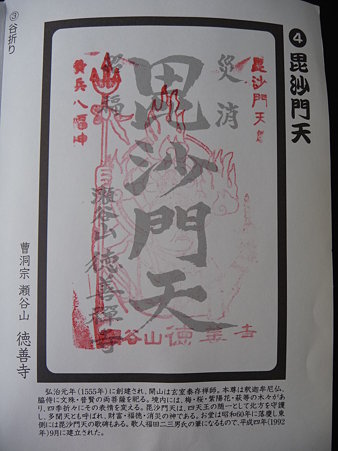 ③谷折り
❹毘沙門天
毘沙門天
災消
毘沙門天
瀬谷山 徳善禅寺
瀬谷山 徳善寺
曹洞宗 瀬谷山 徳善寺
弘治元年(1555年)に創建され、開山は玄室泰存禅師。本尊は釈迦牟尼仏、
脇侍に文殊・普賢の両菩薩を祀る。境内には、梅・桜・紫陽花・萩等の木々があ
り、四季折々にその表情を変える。毘沙門天は、四天王の随一として北方を守護
し、多聞天とも呼ばれ、財富・福徳・消災の神である。お堂は昭和60年に落慶し東
側には毘沙門天の歌碑もある。歌人福田二三男氏の筆になるもので、平成四年(1992
年)9月に建立された。